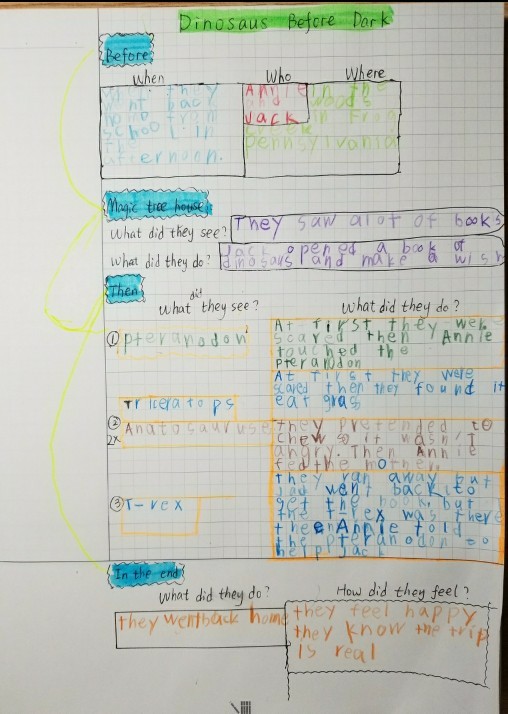 Dinosaus Before Dark
Before
When
Who
Where
they
Annie in the
nt back
and woods
home from
Jack in Frog
school in
creek
the
pennsylvania
afternoon.
Magic tree house
What did they see?
They saw alot of books
What did they do?
Jack opened a book of
dinosaus and make a wish
Then
What did they see?
What did they do?
① pteranodon
At first they were
scared then Annie
touched the
pteranodon
Triceratops
At first they were
scared then they found it
eat gras
② 2x Anatosauruse
they pretended to
chew so it wasn't
angry. Then Annie
fed the mother.
③ T-rex
they ran away but
went back to
get the book, but
the T-rex was there
then Annie told
the pteranodon to
help Jack
In the end
What did they do?
How did they feel?
they went back home
they feel happy
they know the trip
is real